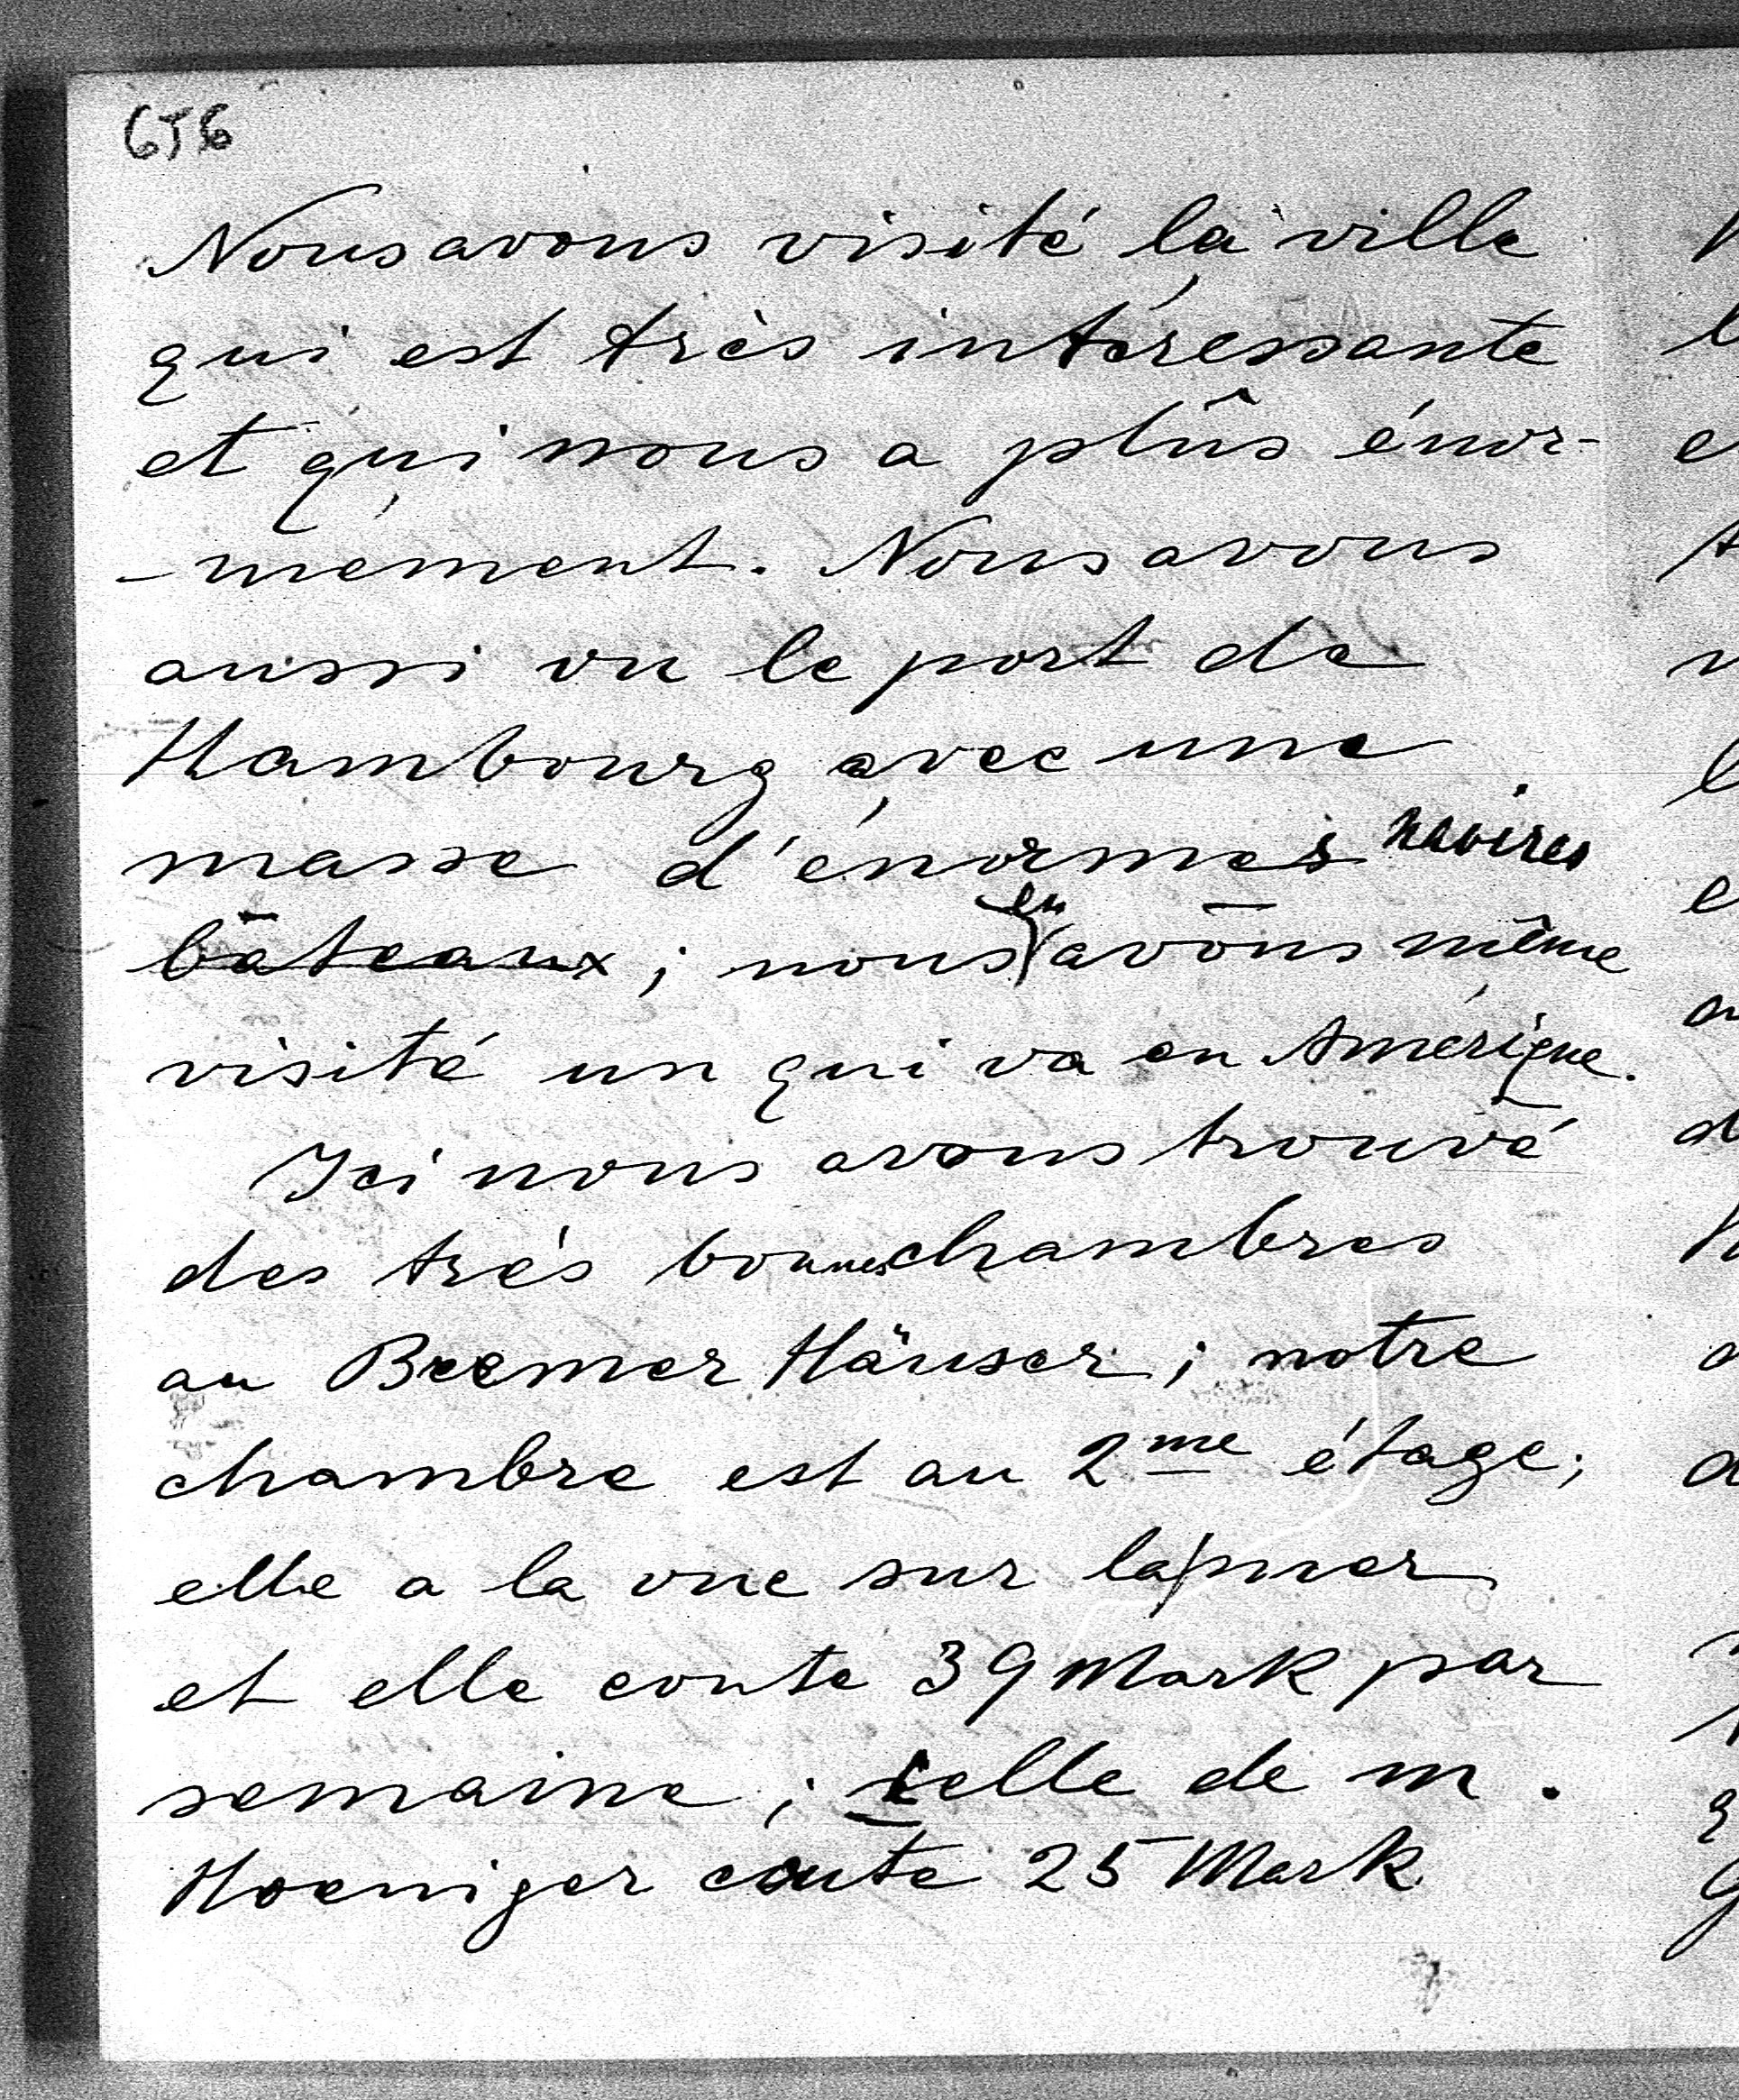 656
Nous avons visité la ville
qui est très intéressante
et qui nous a plûs énor-
-mément. Nous avons
aussi vu le port de
Hambourg avec une
masse d'énormes navires
bâteaux; nous en avons même
visité un qui va en Amérique.
Ici nous avons trouvé
des très bonnes chambres
au Bremer Häuser; notre
chambre est au 2me étage;
elle a la vue sur la mer
et elle coute 39 Mark par
semaine; celle de M.
Hoeniger coute 25 Mark